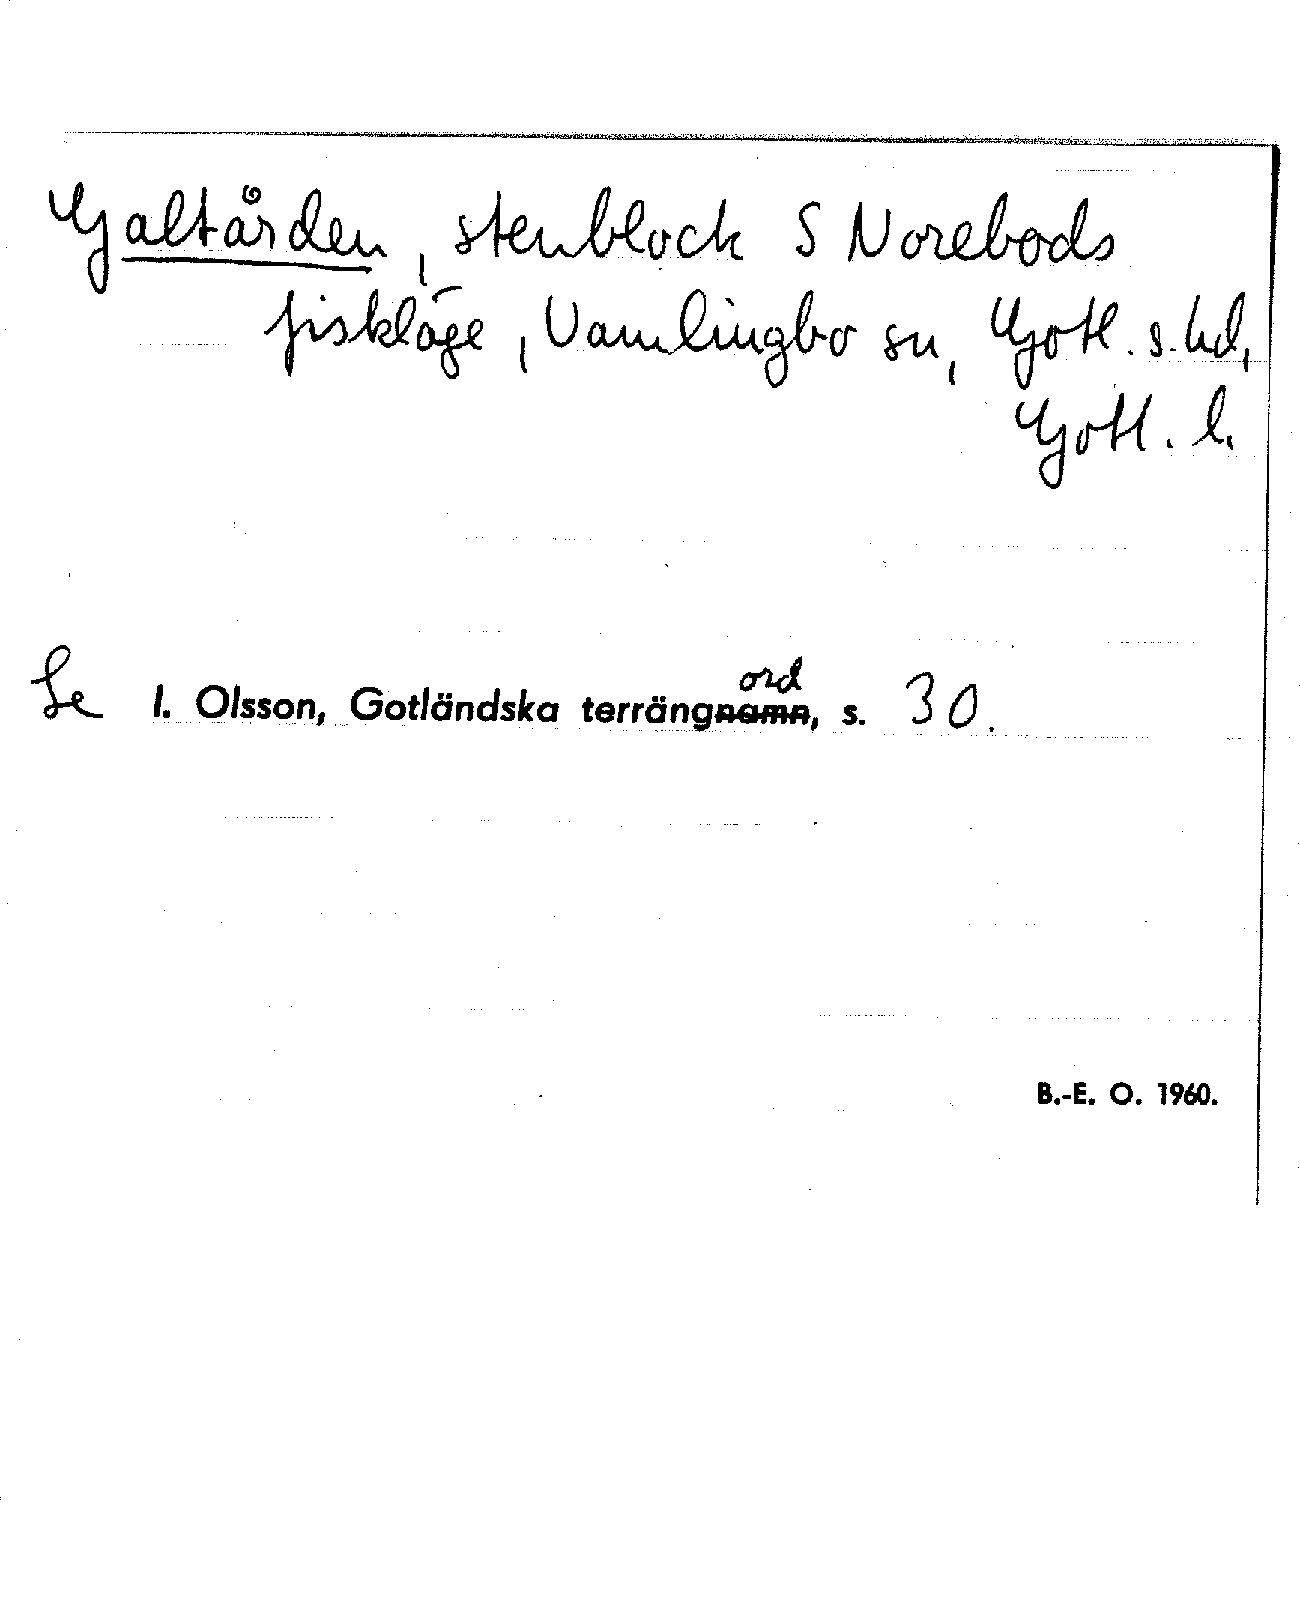 Galtården, stenblock S Norebods
fiskläge, Vamlingbo sn, Gotl. s. hd,
Gotl. l.
Se I. Olsson, Gotländska terrängnamn ord, s. 30.
B.-E. O. 1960.